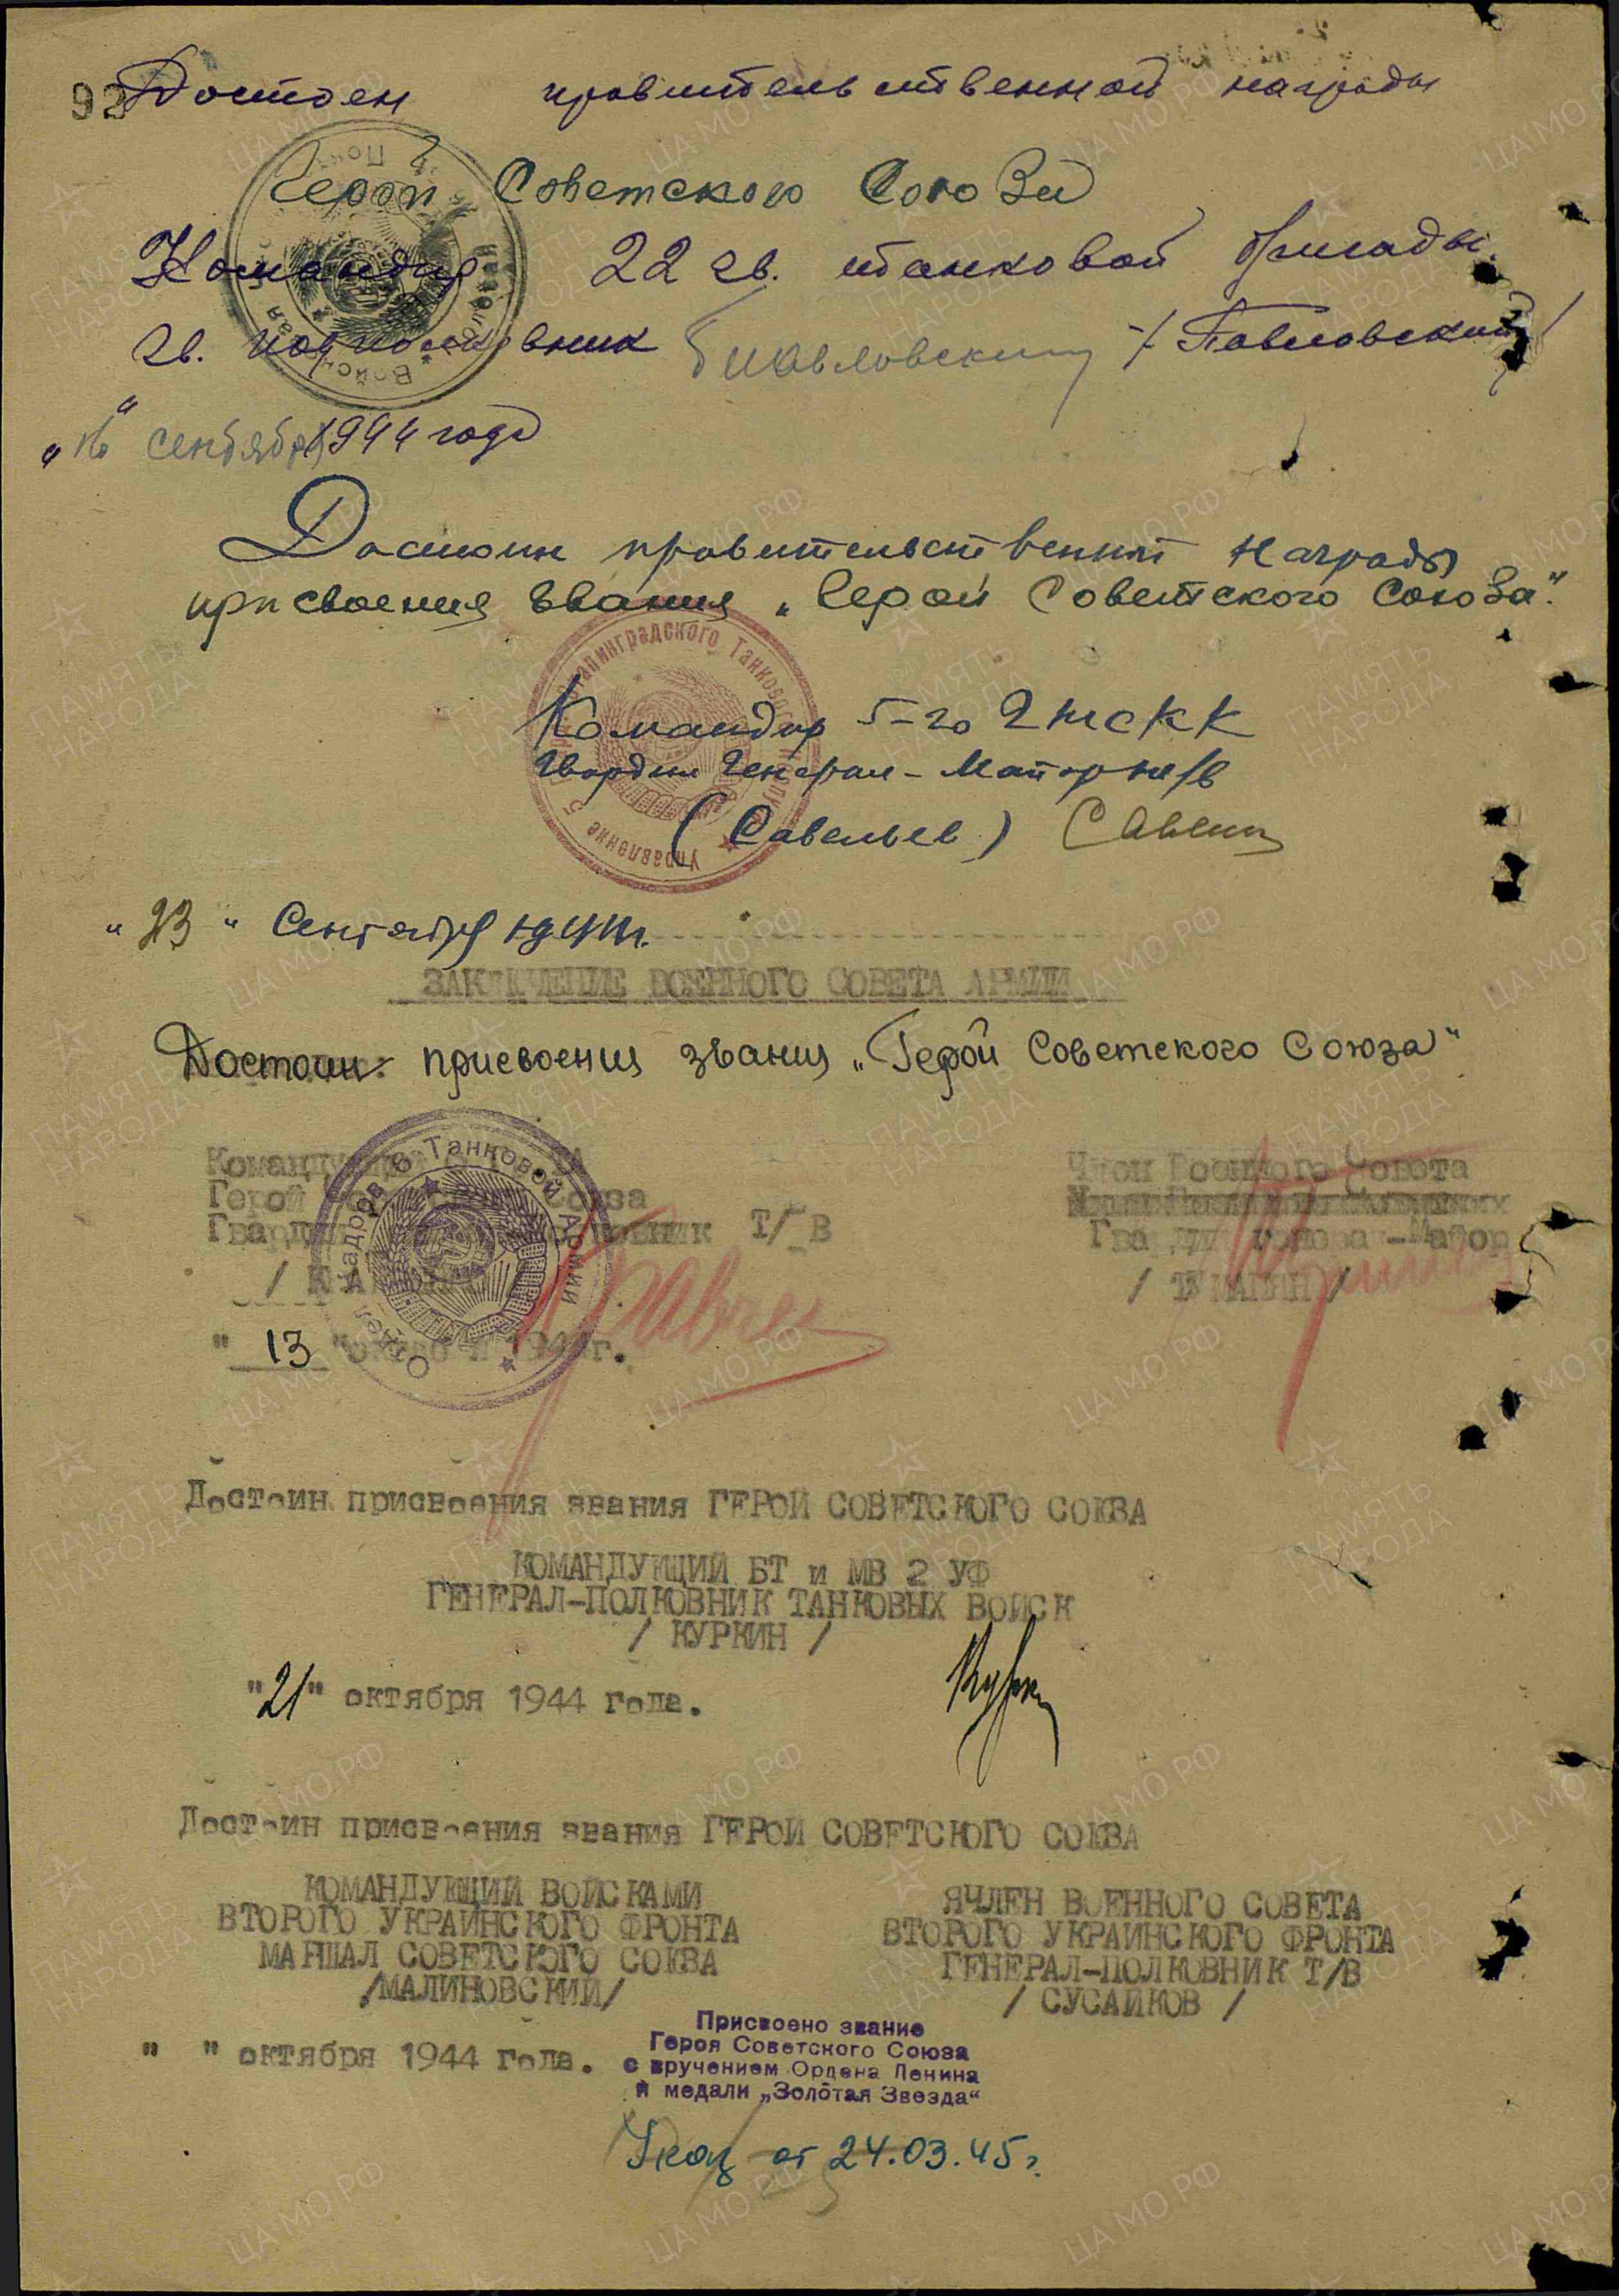 92
Достоен правительственной награды
Герой Советского Союза
Командир 22 гв. танковой бригады
гв. подполковник Павловский /Павловский/
"16" сентября 1944 года
Достоин правительственной награды
присвоения звания „Герой Советского Союза".
Командир 5-го гтскк
Гвардии Генерал-Майор т/в
(Савельев)
"23" Сентября 1944г.
ЗАКЛЮЧЕНИЕ ВОЕННОГО СОВЕТА АРМИИ
Достоин присвоения звания „Герой Советского Союза"
Отдел кадров 6 Танковой Армии
Герой Союза
Т/В
Член Военного Совета
Гвардии генерал-Майор
"13" 1944г.
Достоин присвоения звания ГЕРОЙ СОВЕТСКОГО СОЮЗА
КОМАНДУЮЩИЙ БТ и МВ 2 УФ
ГЕНЕРАЛ-ПОЛКОВНИК ТАНКОВЫХ ВОЙСК
/ КУРКИН /
"21" октября 1944 года.
Достоин присвоения звания ГЕРОЙ СОВЕТСКОГО СОЮЗА
КОМАНДУЮЩИЙ ВОЙСКАМИ
ВТОРОГО УКРАИНСКОГО ФРОНТА
МАРШАЛ СОВЕТСКОГО СОЮЗА
/МАЛИНОВСКИЙ/
ЯЧЛЕН ВОЕННОГО СОВЕТА
ВТОРОГО УКРАИНСКОГО ФРОНТА
ГЕНЕРАЛ-ПОЛКОВНИК Т/В
/ СУСАЙКОВ /
" " октября 1944 года.
Присвоено звание
Героя Советского Союза
с вручением Ордена Ленина
и медали „Золотая Звезда"
Указ от 24.03.45г.
ПАМЯТЬ НАРОДА
ЦАМО РФ